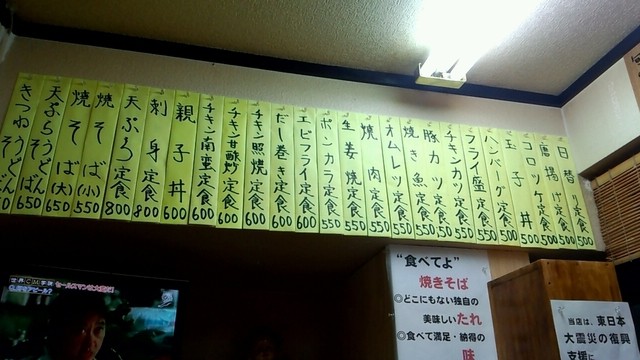 日替り定食 500
唐揚げ定食 500
コロッケ定食 500
玉子丼 500
ハンバーグ定食 550
フライ盛定食 550
チキンカツ定食 550
豚カツ定食 550
焼き魚定食 550
オムレツ定食 550
焼肉定食 550
生姜焼定食 550
ポンカラ定食 550
エビフライ定食 600
だし巻き定食 600
チキン照焼定食 600
チキン甘酢炒定食 600
チキン南蛮定食 600
親子丼 600
刺身定食 800
天ぷら定食 800
焼そば(小) 550
焼そば(大) 650
天ぷらうどんそば 650
きつねうどんそば
“食べてよ”
焼きそば
◎どこにもない独自の
美味しいたれ
◎食べて満足・納得の
味
当店は、東日本
大震災の復興
支援に